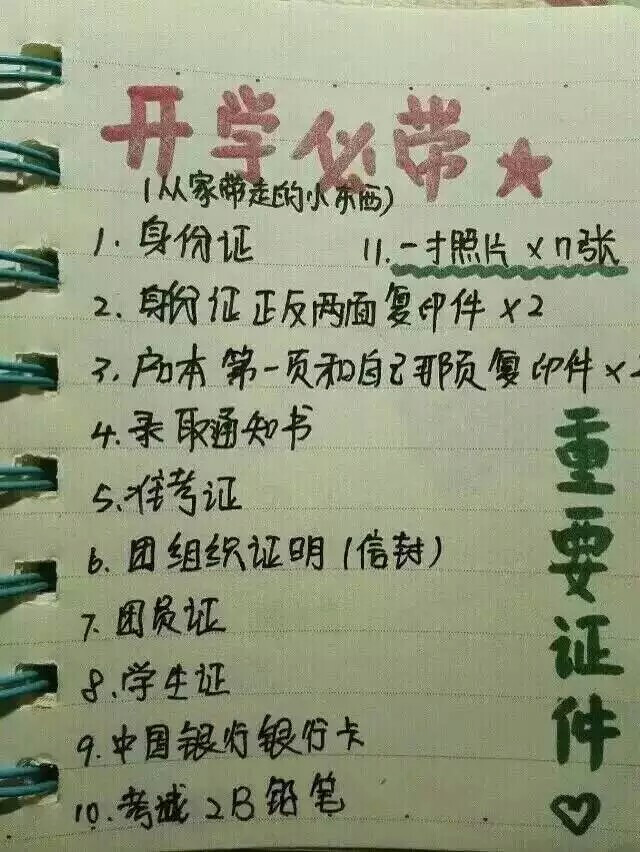 开学必带★
(从家带走的小东西)
1. 身份证
11. 一寸照片 ×n张
2. 身份证正反两面复印件 ×2
3. 户口本第一页和自己那页复印件 ×2
4. 录取通知书
5. 准考证
6. 团组织证明(信封)
7. 团员证
8. 学生证
9. 中国银行银行卡
10. 考试 2B 铅笔
重要证件♡